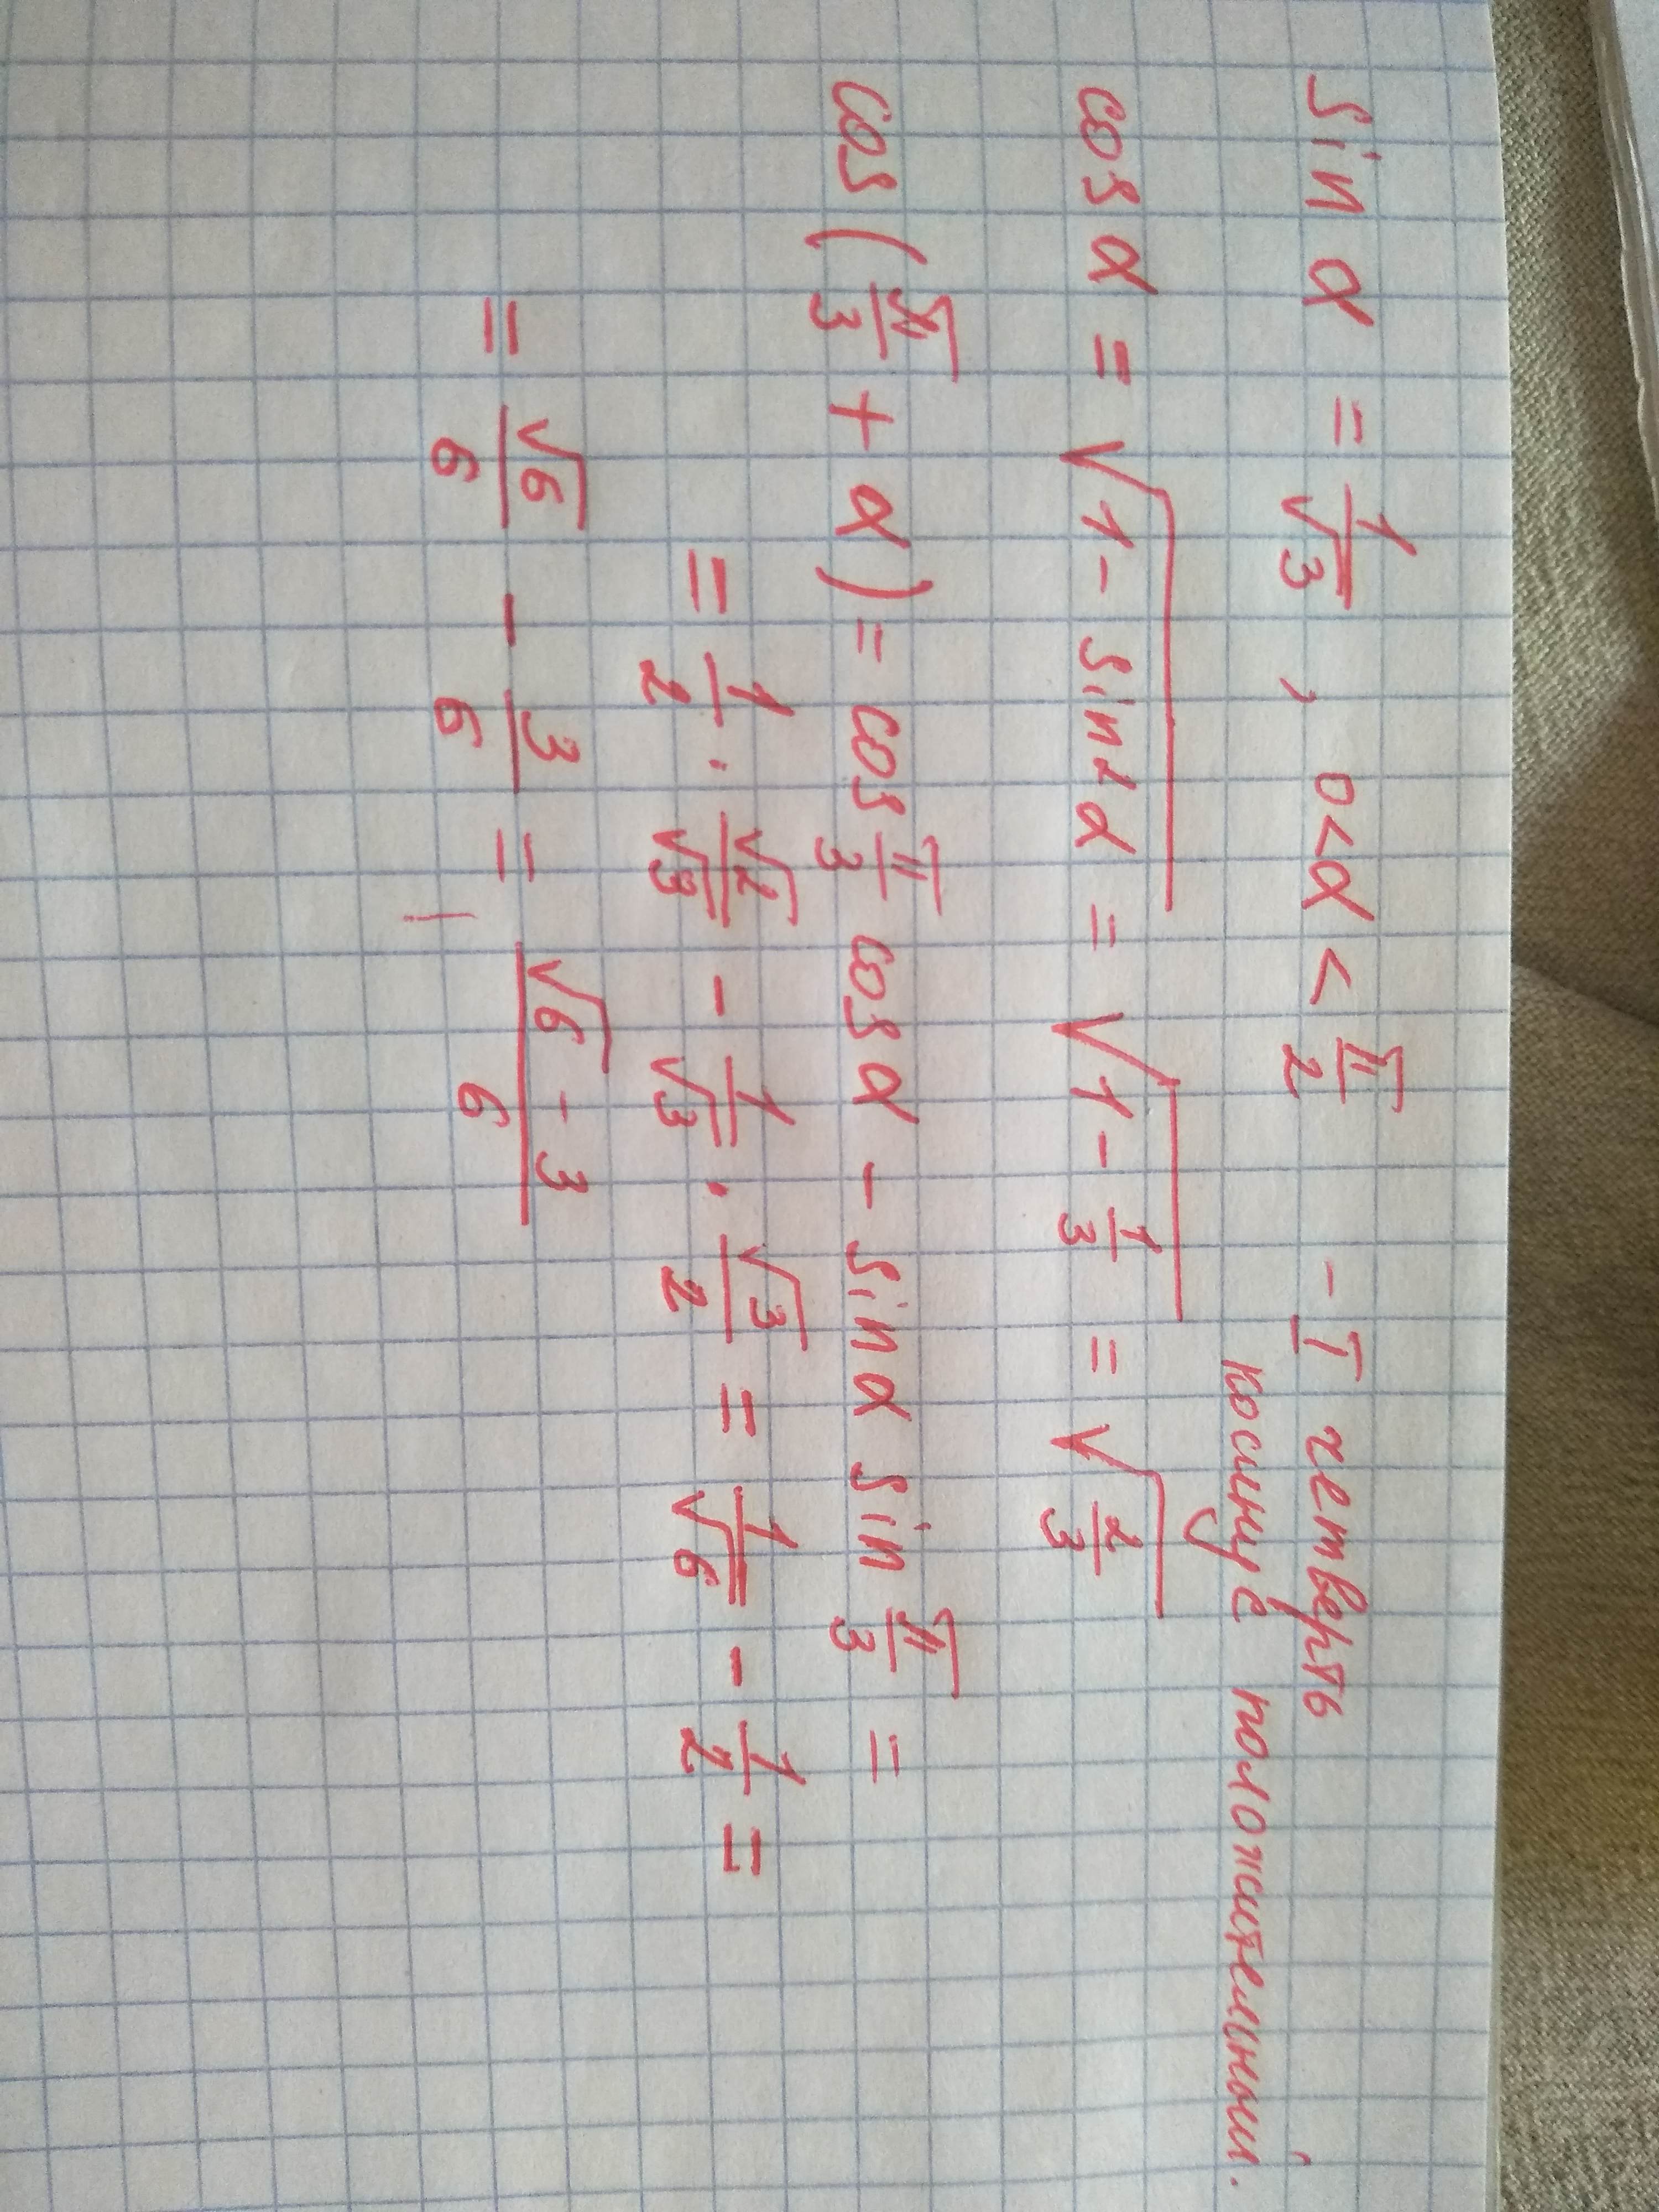 sin α = 1/√3 , 0<α< π/2 - I четверть
косинус положительный.
cos α = √(1 - sin²α) = √(1 - 1/3) = √(2/3)
cos(π/3 + α) = cos π/3 cos α - sin α sin π/3 =
= 1/2 · √2/√3 - 1/√3 · √3/2 = 1/√6 - 1/2 =
= √6/6 - 3/6 = (√6 - 3)/6